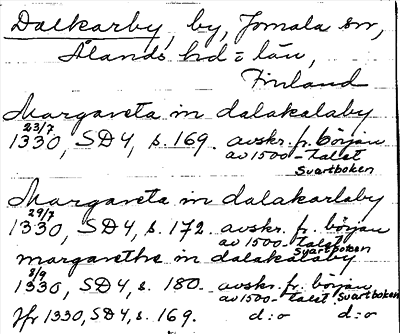 Dalkarby, by, Jomala sn,
Ålands hd = län,
Finland
Margareta in dalakalaby
23/7
1330, SD4, s. 169. avskr. fr. början
av 1500-talet
Svartboken
Margareta in dalakarlaby
29/7
1330, SD4, s. 172. avskr. fr. början
av 1500-talet
Svartboken
margarethe in dalakalaby
8/9
1330, SD4, s. 180. avskr. fr. början
av 1500-talet Svartboken
Jfr 1330, SD4, s. 169. d:o d:o